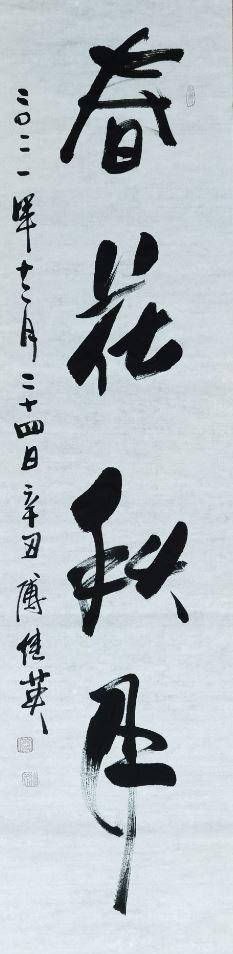 春花秋月
二〇二一年十二月二十四日辛丑傅佳英